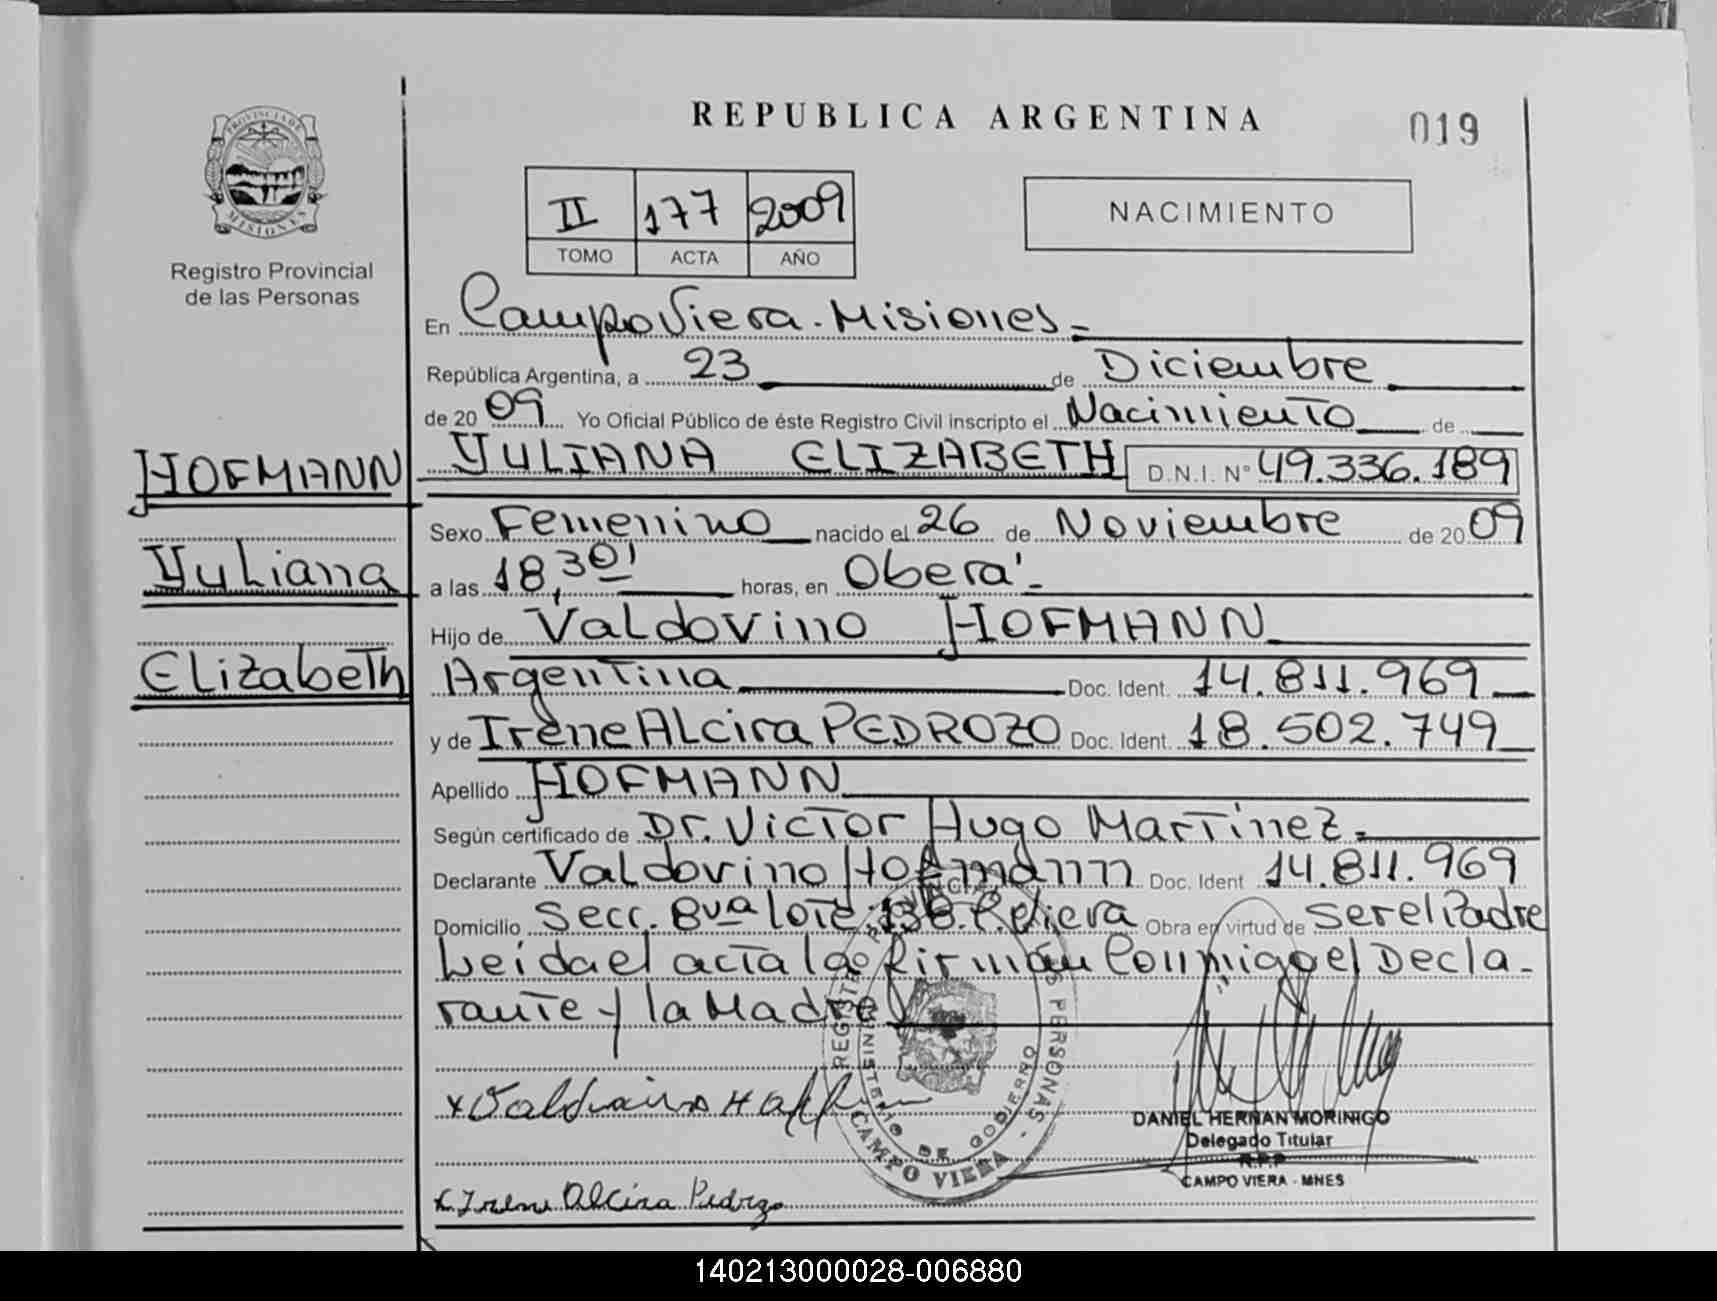 REPUBLICA ARGENTINA
019
PROVINCIA DE MISIONES
Registro Provincial
de las Personas
II 177 2009
TOMO ACTA AÑO
NACIMIENTO
En Campo Viera - Misiones -
República Argentina, a 23 de Diciembre
de 2009 Yo Oficial Público de éste Registro Civil inscripto el Nacimiento de
HOFMANN
Yuliana
Elizabeth
YULIANA ELIZABETH D.N.I. N° 49.336.189
Sexo Femenino nacido el 26 de Noviembre de 2009
a las 18,30' horas, en Oberá -
Hijo de Valdovino HOFMANN
Argentina Doc. Ident. 14.811.969
y de Irene Alcira PEDROZO Doc. Ident. 18.502.749
Apellido HOFMANN
Según certificado de Dr. Victor Hugo Martinez -
Declarante Valdovino Hofmann Doc. Ident 14.811.969
Domicilio Secc. 8va lote 138. Obra en virtud de ser el Padre
Leida el acta la firman Conmigo el Decla-
rante y la Madre
REGISTRO PROVINCIAL DE LAS PERSONAS
MINISTERIO DE GOBIERNO
CAMPO VIERA
x Valdovino
DANIEL HERNAN MORINIGO
Delegado Titular
R.P.P
CAMPO VIERA - MNES
x Irene Alcira Pedrozo
140213000028-006880